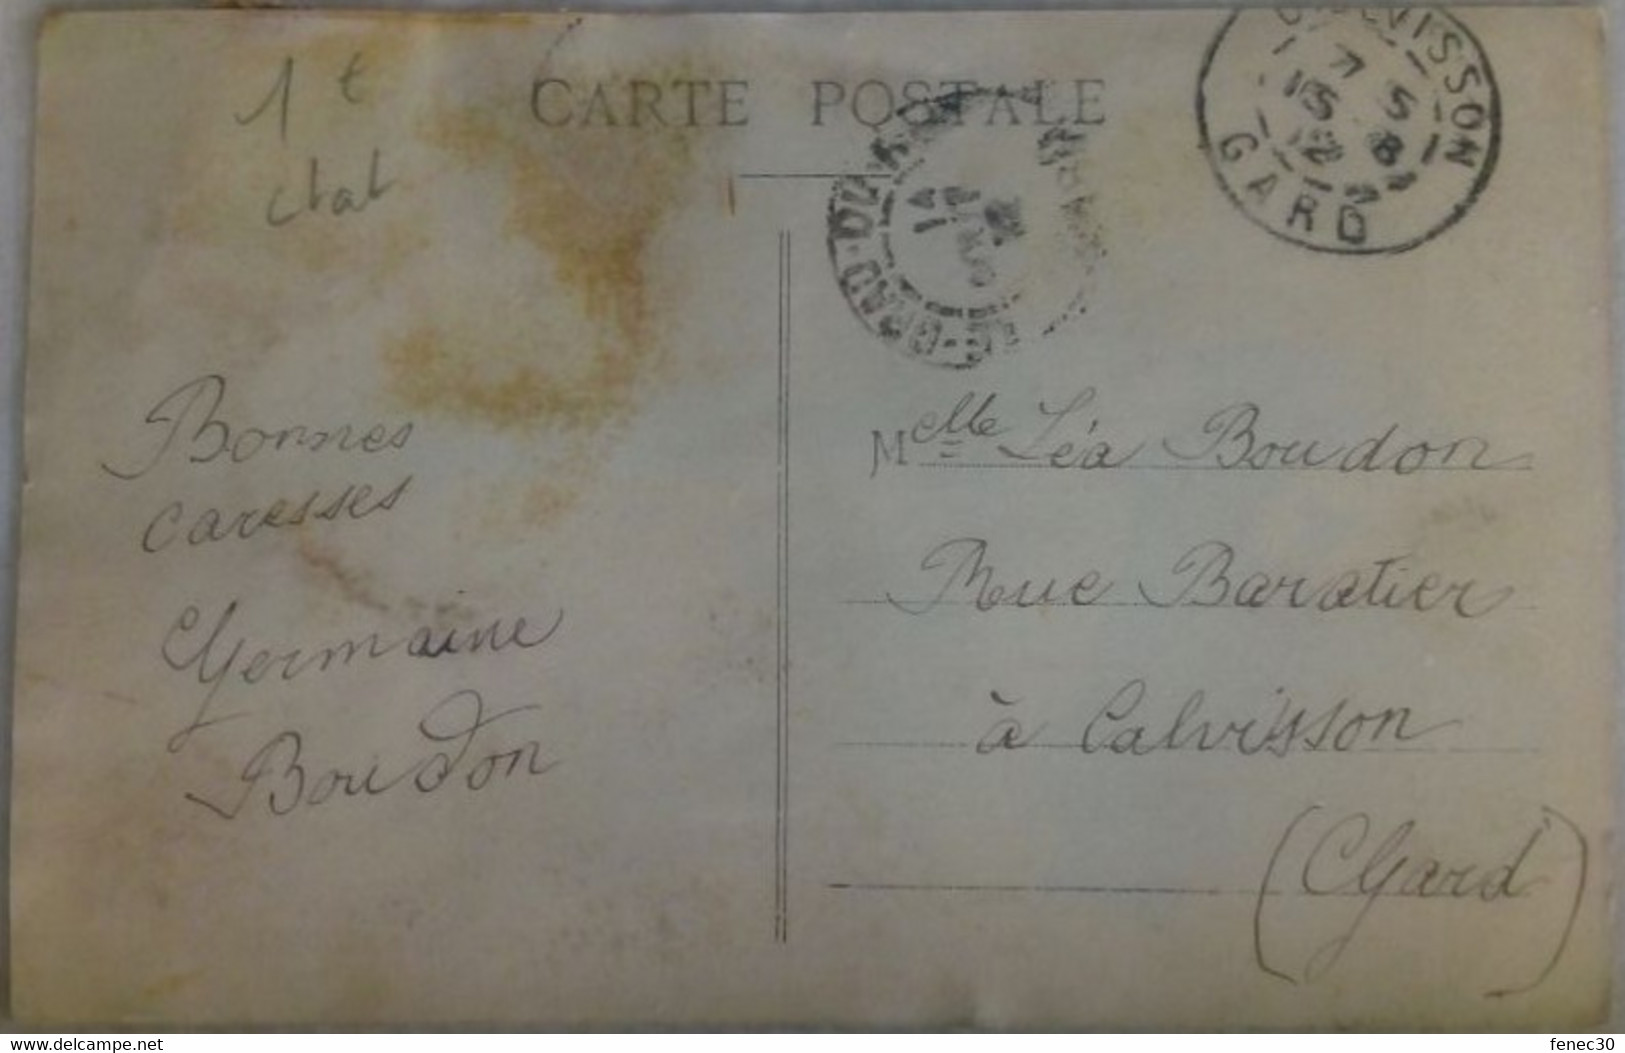 1t
CARTE POSTALE
CALVISSON
7 5
15 8
12
GARD
GRAU-DU-
14
Bonnes
caresses
Germaine
Boudon
Melle Léa Boudon
Rue Baratier
à Calvisson
(Gard)
www.delcampe.net
fenec30